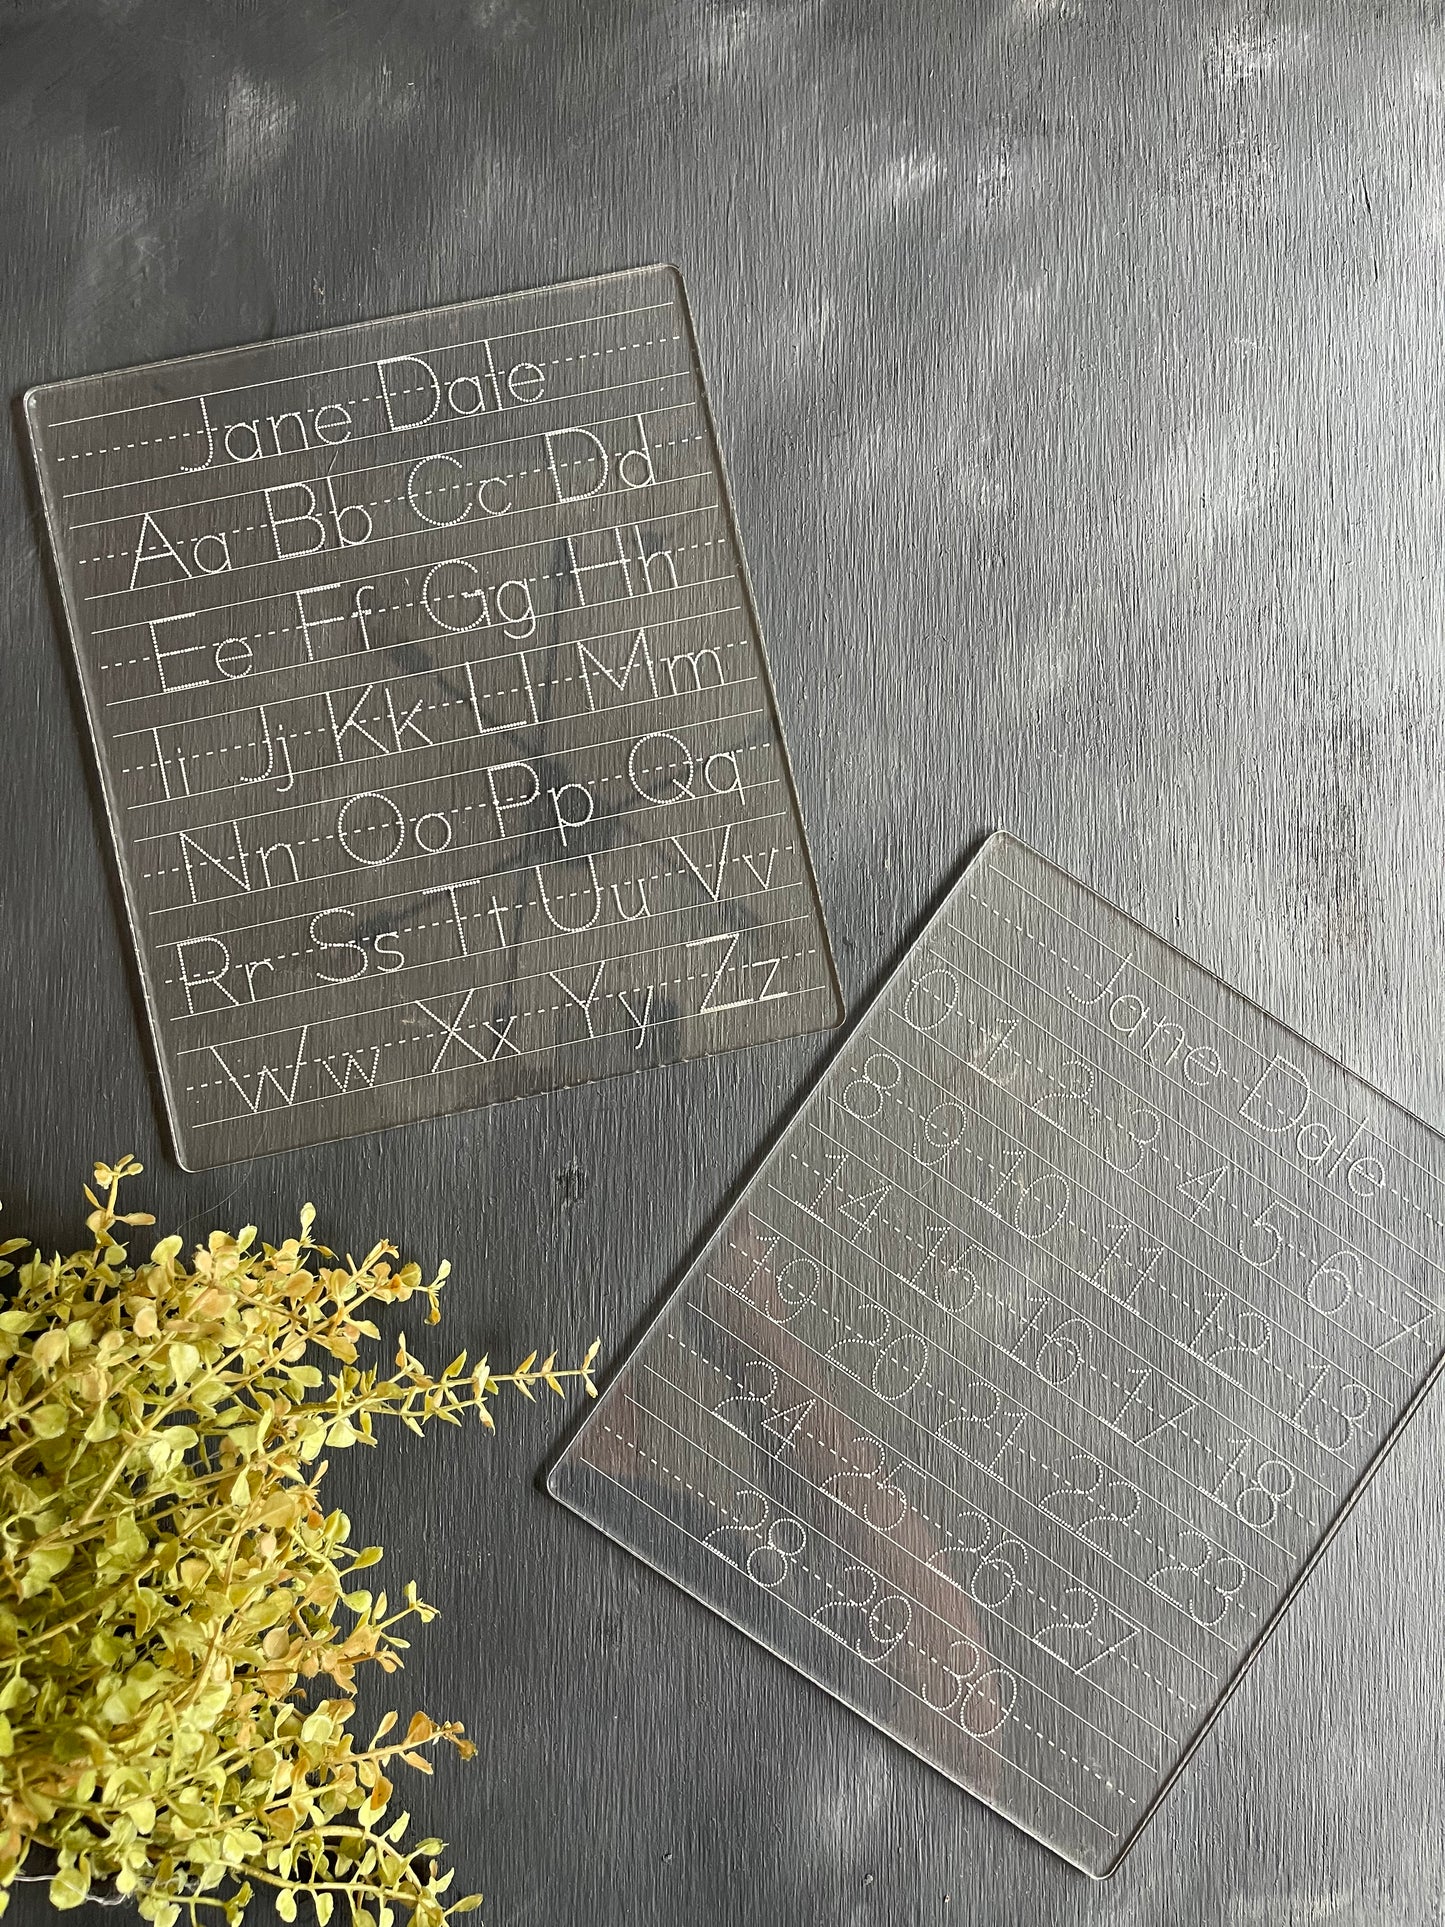 Jane Dale
Aa Bb Cc Dd
Ee Ff Gg Hh
Ii Jj Kk Ll Mm
Nn Oo Pp Qq
Rr Ss Tt Uu Vv
Ww Xx Yy Zz
Jane Dale
0 1 2 3 4 5 6 7
8 9 10 11 12 13
14 15 16 17 18
19 20 21 22 23
24 25 26 27
28 29 30